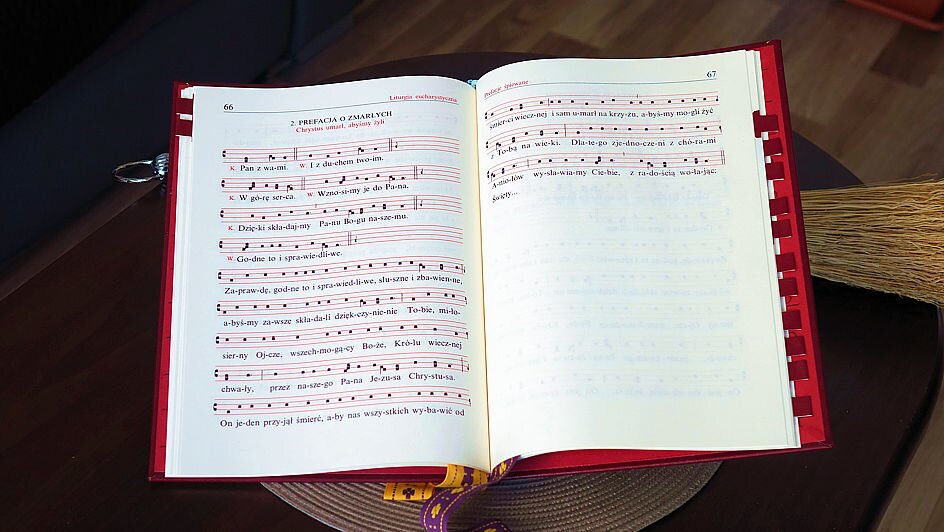 66
Liturgia eucharystyczna
2. PREFACJA O ZMARŁYCH
Chrystus umarł, abyśmy żyli
K. Pan z wa-mi. W. I z du-chem two-im.
K. W gó-rę ser-ca. W. Wzno-si-my je do Pa-na.
K. Dzię-ki skła-daj-my Pa-nu Bo-gu na-sze-mu.
W. Go-dne to i spra-wie-dli-we.
Za-praw-dę, god-ne to i spra-wied-li-we, słu-szne i zba-wien-ne,
a-byś-my za-wsze skła-da-li dzięk-czy-nie-nie To-bie, mi-ło-
sier-ny Oj-cze, wszech-mo-gą-cy Bo-że, Kró-lu wiecz-nej
chwa-ły, przez na-sze-go Pa-na Je-zu-sa Chry-stu-sa.
On je-den przy-jął śmierć, a-by nas wszy-stkich wy-ba-wić od
Prefacje śpiewane
67
śmier-ci wiecz-nej i sam u-marł na krzy-żu, a-byś-my mo-gli żyć
z To-bą na wie-ki. Dla-te-go zje-dno-cze-ni z chó-ra-mi
A-nio-łów wy-sła-wia-my Cie-bie, z ra-do-ścią wo-ła-jąc:
Święty...